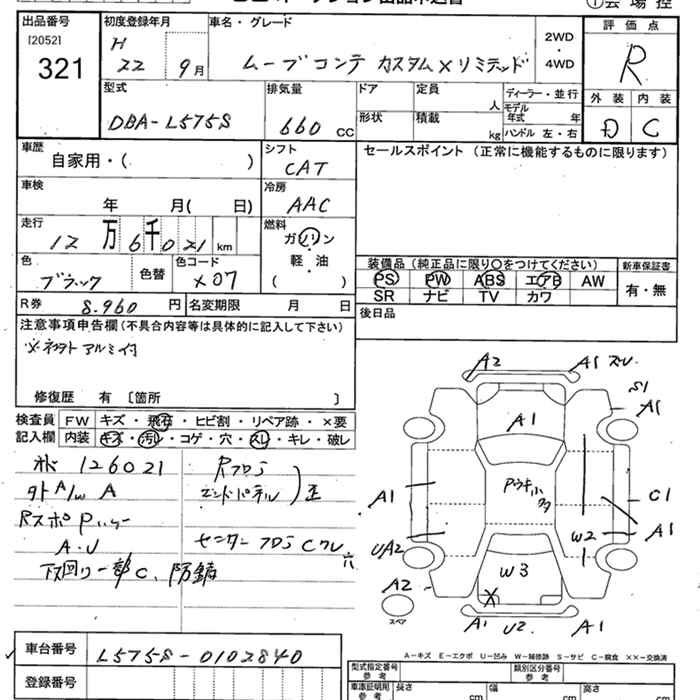 出品番号
[2052]
321
初度登録年月
H
22 9月
車名・グレード
ムーブコンテ カスタム×リミテッド
2WD
・
4WD
評価点
R
外装 内装
D C
型式
DBA-L575S
排気量
660 cc
ドア
定員 人
形状
積載 kg
ディーラー・並行
モデル年式 年
ハンドル 左・右
車歴
自家用・( )
シフト
CAT
セールスポイント (正常に機能するものに限ります)
車検
年 月( 日)
冷房
AAC
走行
12万6千021 km
燃料
ガソリン
軽・油
( )
色
ブラック
色替
色コード
X07
装備品 (純正品に限り○をつけてください)
PS PW ABS エアB AW
SR ナビ TV カワ
新車保証書
有・無
R券 8.960 円
名変期限 月 日
後日品
注意事項申告欄 (不具合内容等は具体的に記入して下さい)
アルミ付
修復歴 有 [箇所 ]
検査員
記入欄
FW キズ・飛石・ヒビ割・リペア跡・×要
内装 キズ・汚レ・コゲ・穴・スレ・キレ・破レ
126021
外A/w A
A・U
下回り一部C、防錆
Rフロア
エンドパネル
歪
センターフロアCクレ
穴
A2
A1
S1
A1
A1
A1
C1
A1
W2
UA2
W3
A2
スペア
A1
U2
A1
A-キズ E-エクボ U-凹み W-補修跡 S-サビ C-腐食 ××-交換済
車台番号
L575S-0102840
登録番号
型式指定番号
参考
類別区分番号
参考
車庫証明用
参考
長さ cm
幅 cm
高さ cm